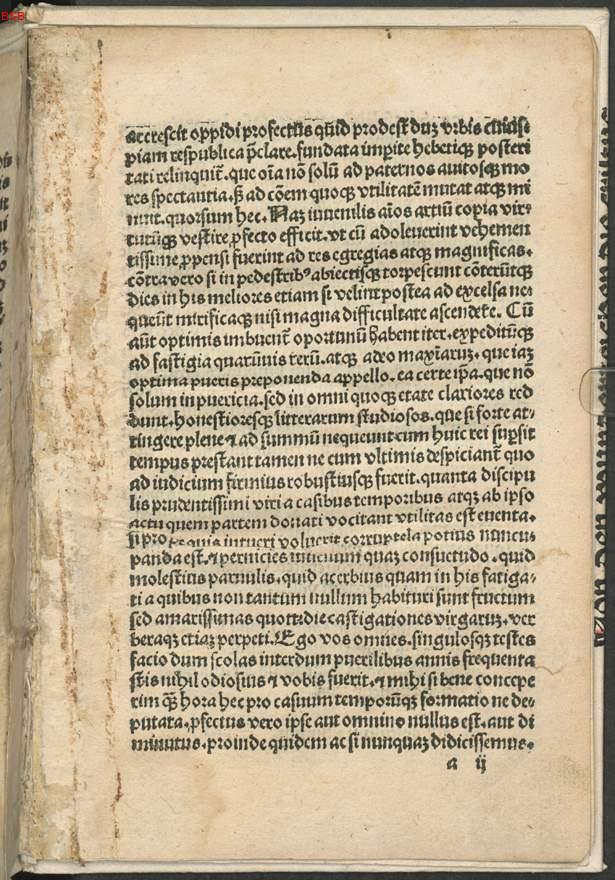 accrescit oppidi profectus qͥd prodest duꝫ vrbis
piam respublica p̄clare. fundata imꝑite hebetiqꝫ posteri
tati relinquit᷑. que oīa nō solū ad paternos auitosqꝫ mo
res spectantia. sꝫ ad cōem quoqꝫ vtilitatē mutat atqꝫ mi
nuit. quorsum hec. Naꝫ iuuenilis aīos artiū copia vir⸗
tutūqꝫ vestire ꝓfecto efficit. vt cū adoleuerint vehemen
tissime ꝓpensi fuerint ad res egregias atqꝫ magnificas.
cōtra vero si in pedestribꝰ abiectisqꝫ torpescunt cōterūtqꝫ
dies in his meliores etiam si velint postea ad excelsa ne⸗
queūt mirificaqꝫ nisi magna difficultate ascendere. Cū
aūt optimis imbuent᷑ oportunū habent iter. expeditūqꝫ
ad fastigia quarūuis rerū. atqꝫ adeo maxīaruꝫ. que iaꝫ
optima pueris preponenda appello. ea certe ip̄a. que nō
solum in puericia. sed in omni quoqꝫ etate clariores red
dunt. honestioresqꝫ litterarum studiosos. que si forte at⸗
tingere plene ⁊ ad summū nequeunt cum huic rei suꝑsit
tempus prestant tamen ne cum vltimis despiciant᷑ quo
ad iudicium firmius robustiusqꝫ fuerit. quanta discipu
lis prudentissimi viri a casibus temporibus atqꝫ ab ipso
actu quem partem donati vocitant vtilitas est euenta.
si pro intueri voluerit corruptela potius nuncu⸗
panda est. ⁊ pernicies quaꝫ consuetudo. quid
molestius paruulis. quid acerbius quam in his fatiga⸗
ti a quibus non tantum nullum habituri sunt fructum
sed amarissimas quottidie castigationes virgaruꝫ. ver
beraqꝫ etiaꝫ perpeti. Ego vos omnes. singulosqꝫ testes
facio dum scolas interdum puerilibus annis frequenta
stis nihil odiosius ⁊ vobis fuerit. ⁊ mihi si bene concepe
rim qꝫ̄ hora hec pro casuum temporūqꝫ formatione de⸗
putata. ꝓfectus vero ipse aut omnino nullus est. aut di
minutus. proinde quidem ac si nunquaꝫ didicissemus.
a ij
BSB